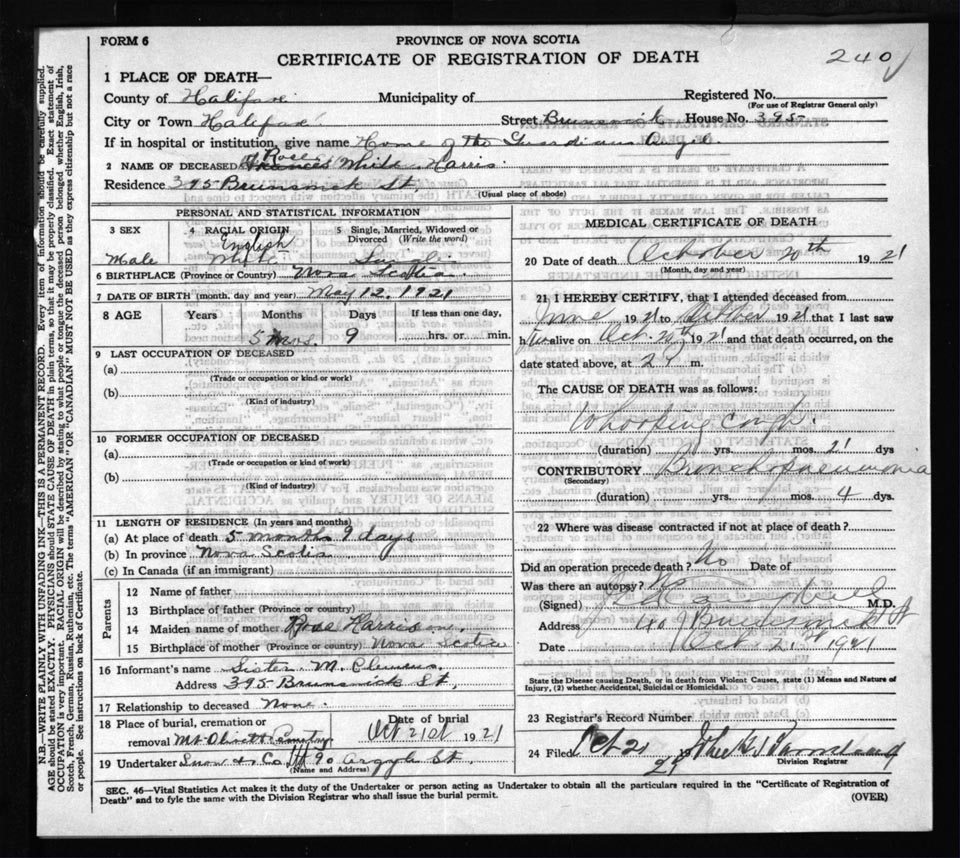 FORM 6
PROVINCE OF NOVA SCOTIA
CERTIFICATE OF REGISTRATION OF DEATH
240
1 PLACE OF DEATH—
County of Halifax Municipality of Registered No.
(For use of Registrar General only)
City or Town Halifax Street Brunswick House No. 395
If in hospital or institution, give name Home of the Guardian Angel
2 NAME OF DECEASED White Harris
Residence 395 Brunswick St,
(Usual place of abode)
PERSONAL AND STATISTICAL INFORMATION
3 SEX 4 RACIAL ORIGIN 5 Single, Married, Widowed or Divorced (Write the word)
English
Male White Single
6 BIRTHPLACE (Province or Country) Nova Scotia
7 DATE OF BIRTH (month, day and year) May 12. 1921
8 AGE Years Months Days If less than one day,
5 mos. 9 hrs. or min.
9 LAST OCCUPATION OF DECEASED
(a)
(Trade or occupation or kind or work)
(b)
(Kind of industry)
10 FORMER OCCUPATION OF DECEASED
(a)
(Trade or occupation or kind or work)
(b)
(Kind of industry)
11 LENGTH OF RESIDENCE (In years and months)
(a) At place of death 5 months 9 days
(b) In province Nova Scotia
(c) In Canada (if an immigrant)
Parents
12 Name of father
13 Birthplace of father (Province or country)
14 Maiden name of mother Rose Harris
15 Birthplace of mother (Province or country) Nova Scotia
16 Informant's name Sister M. Clemens.
Address 395 Brunswick St,
17 Relationship to deceased None.
18 Place of burial, cremation or removal Mt Olivett Cemetery
Date of burial Oct 21st 1921
19 Undertaker Snow & Co 90 Argyle St.
(Name and Address)
MEDICAL CERTIFICATE OF DEATH
20 Date of death October 20th 1921
(Month, day and year)
21 I HEREBY CERTIFY, that I attended deceased from
June 1921 to October 1921 that I last saw
h alive on Oct. 20th 1921 and that death occurred, on the
date stated above, at 2 P m.
The CAUSE OF DEATH was as follows:
Whooping cough.
(duration) yrs. mos. 21 dys
CONTRIBUTORY Bronchopneumonia
(Secondary)
(duration) yrs. mos. 4 dys.
22 Where was disease contracted if not at place of death?
Did an operation precede death? No Date of
Was there an autopsy? No
(Signed) M.D.
Address Brunswick St
Date Oct. 21 1921
State the Disease causing Death, or in death from Violent Causes, state (1) Means and Nature of
Injury, (2) whether Accidental, Suicidal or Homicidal.
23 Registrar's Record Number
24 Filed Oct 21 1921
Division Registrar
SEC. 46—Vital Statistics Act makes it the duty of the Undertaker or person acting as Undertaker to obtain all the particulars required in the "Certificate of Registration of
Death" and to fyle the same with the Division Registrar who shall issue the burial permit.
(OVER)
N.B.—WRITE PLAINLY WITH UNFADING INK—THIS IS A PERMANENT RECORD. Every item of information should be carefully supplied.
AGE should be stated EXACTLY. PHYSICIANS should STATE CAUSE OF DEATH in plain terms, so that it may be properly classified. Exact statement of
OCCUPATION is very important. RACIAL ORIGIN will be described by stating to what people or tongue the deceased person belonged whether English, Irish,
Scotch, French, German, Russian, Ruthenian, etc. The terms "AMERICAN" OR "CANADIAN" MUST NOT BE USED as they express citizenship but not a race
or people. See instructions on back of Certificate.